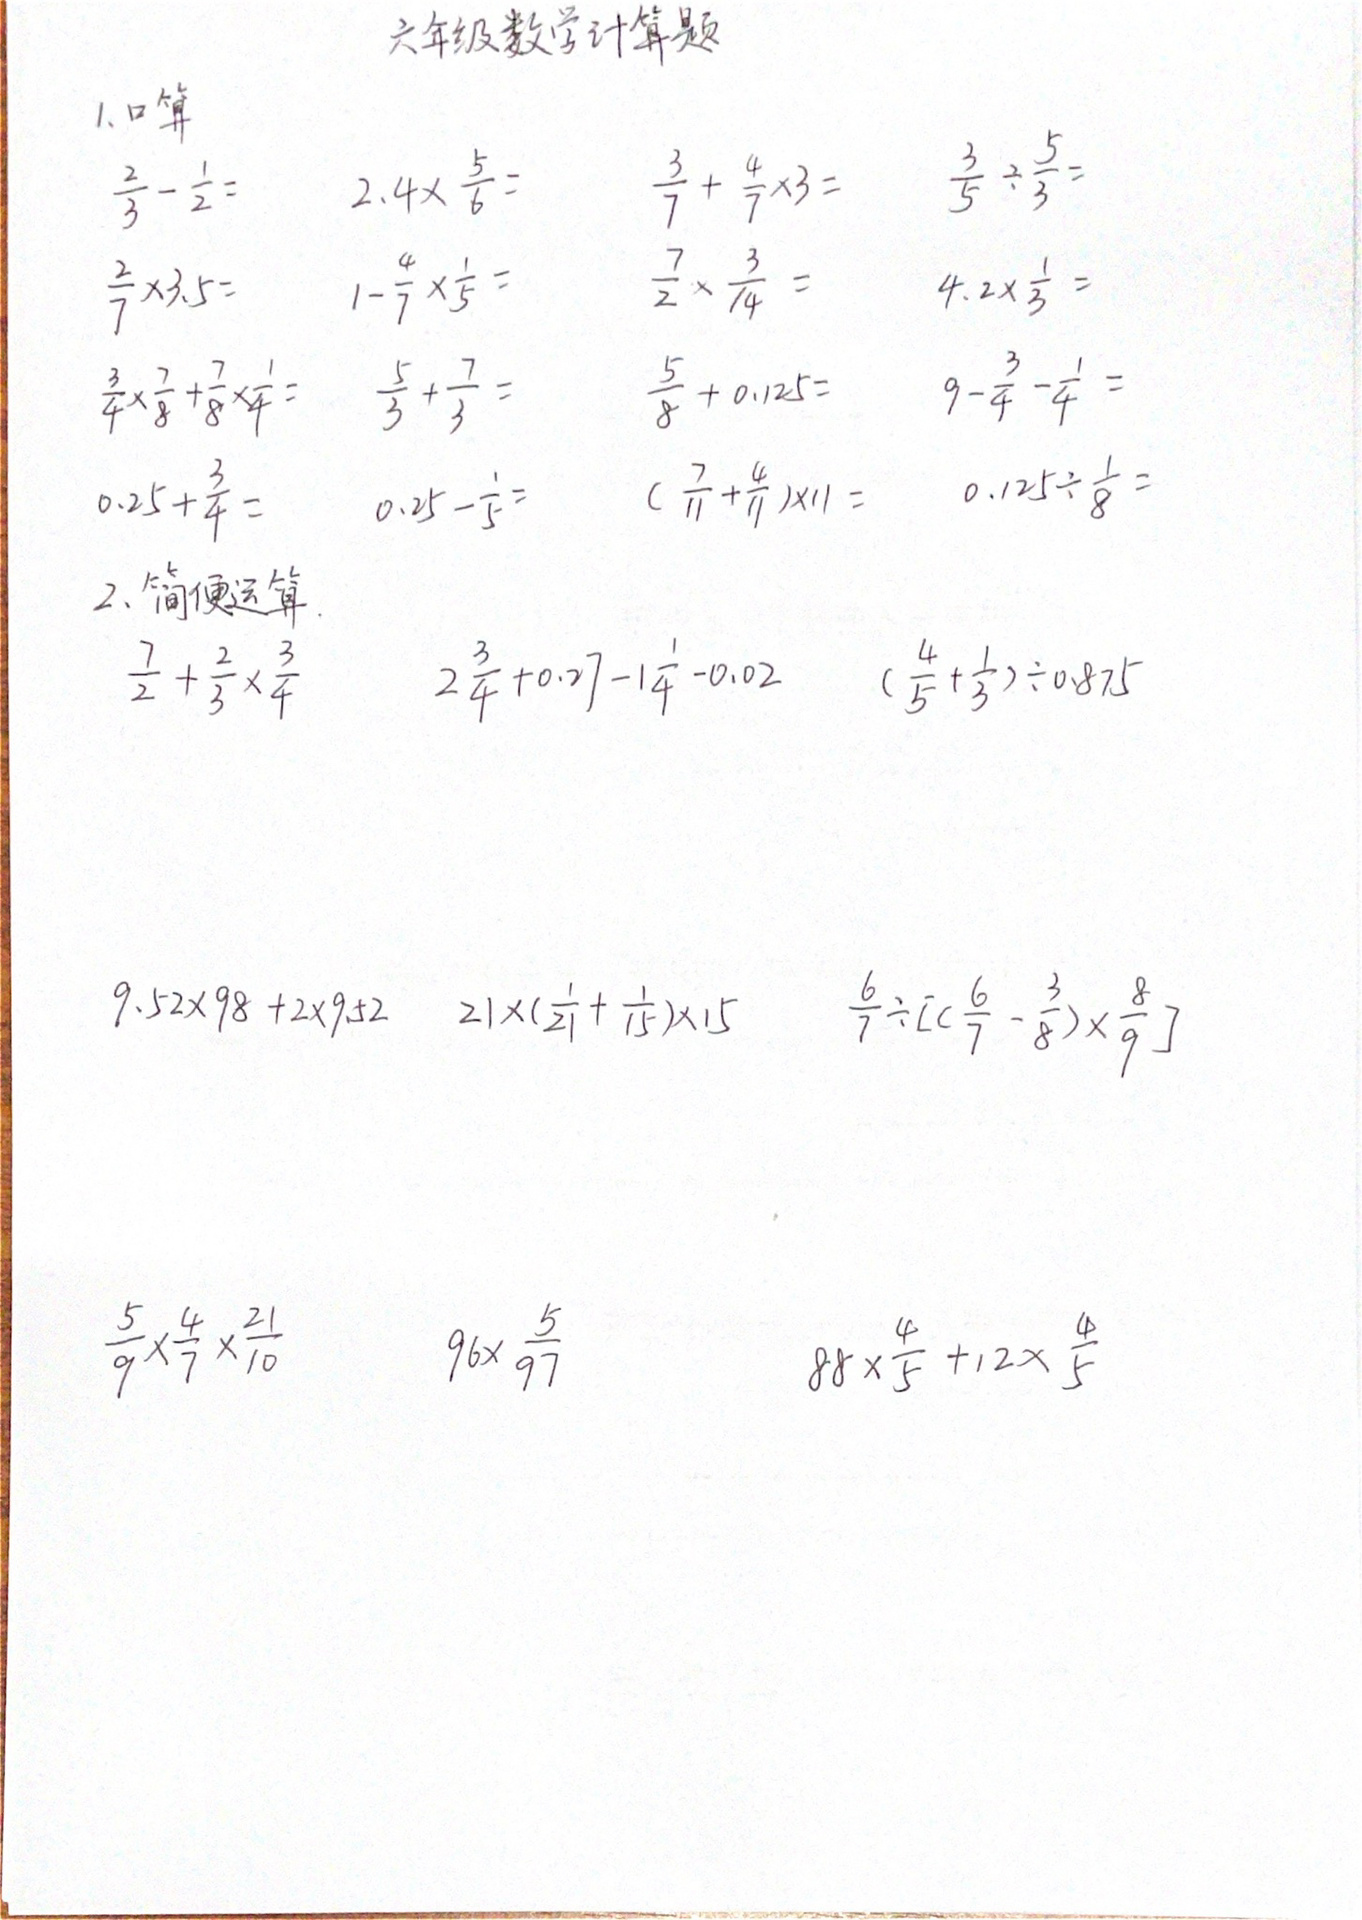 六年级数学计算题
1、口算
2/3 - 1/2 = 2.4 × 5/6 = 3/7 + 4/7 × 3 = 3/5 ÷ 5/3 =
2/7 × 3.5 = 1 - 4/7 × 1/5 = 7/2 × 3/14 = 4.2 × 1/3 =
3/4 × 7/8 + 7/8 × 1/4 = 5/3 + 7/3 = 5/8 + 0.125 = 9 - 3/4 - 1/4 =
0.25 + 3/4 = 0.25 - 1/5 = (7/11 + 4/11) × 11 = 0.125 ÷ 1/8 =
2、简便运算.
7/2 + 2/3 × 3/4 2 3/4 + 0.27 - 1 1/4 - 0.02 (4/5 + 1/3) ÷ 0.875
9.52 × 98 + 2 × 9.52 21 × (1/21 + 1/15) × 15 6/7 ÷ [(6/7 - 3/8) × 8/9]
5/9 × 4/7 × 21/10 96 × 5/97 88 × 4/5 + 12 × 4/5